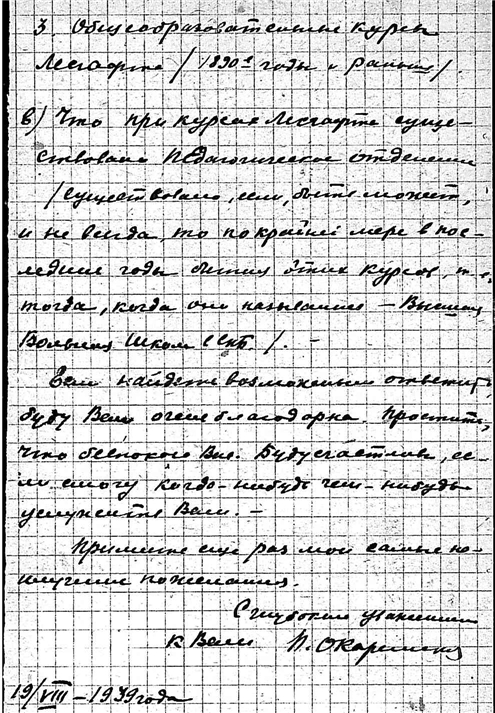 3. Общеобразовательные курсы
Лесгафта /1890е годы и раньше/.
в) Что при курсах Лесгафта суще-
ствовало Педагогическое отделение
/существовало, если, быть может,
и не всегда, то по крайней мере в пос-
ледние годы бытия этих курсов, т.е.
тогда, когда они назывались – Высшая
Вольная Школа СПб /. –
Если найдете возможным ответить,
буду Вам очень благодарна. Простите,
что беспокою Вас. Буду счастлива, ес-
ли смогу когда-нибудь чем-нибудь
услужить Вам. –
Примите еще раз мои самые на-
илучшие пожелания.
С глубоким уважением
к Вам П.
19/VIII – 1939 года